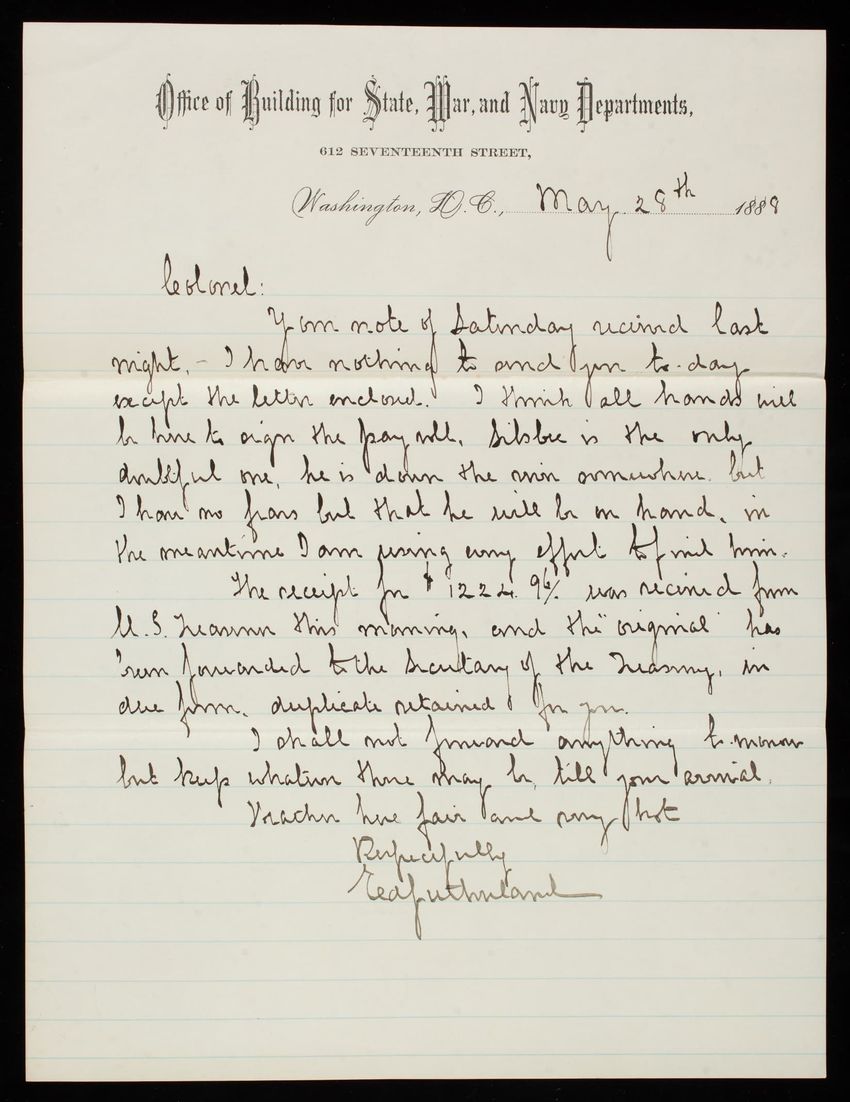 Office of Building for State, War, and Navy Departments,
612 SEVENTEENTH STREET,
Washington, D.C., May 28th 1888
Colonel:
Your note of Saturday received last
night, - I have nothing to send you to-day
except the letter enclosed. I think all hands will
be here to sign the pay roll, Silsbee is the only
doubtful one, he is down the river somewhere but
I have no fears but that he will be on hand, in
the meantime I am using every effort to find him.
The receipt for $1224.96/ was received from
U.S. Treasurer this morning, and the "original" has
been forwarded to the Secretary of the Treasury, in
due form, duplicate retained for you.
I shall not forward anything to-morrow
but keep whatever there may be, till your arrival.
Weather here fair and very hot
Respectfully
Sutherland